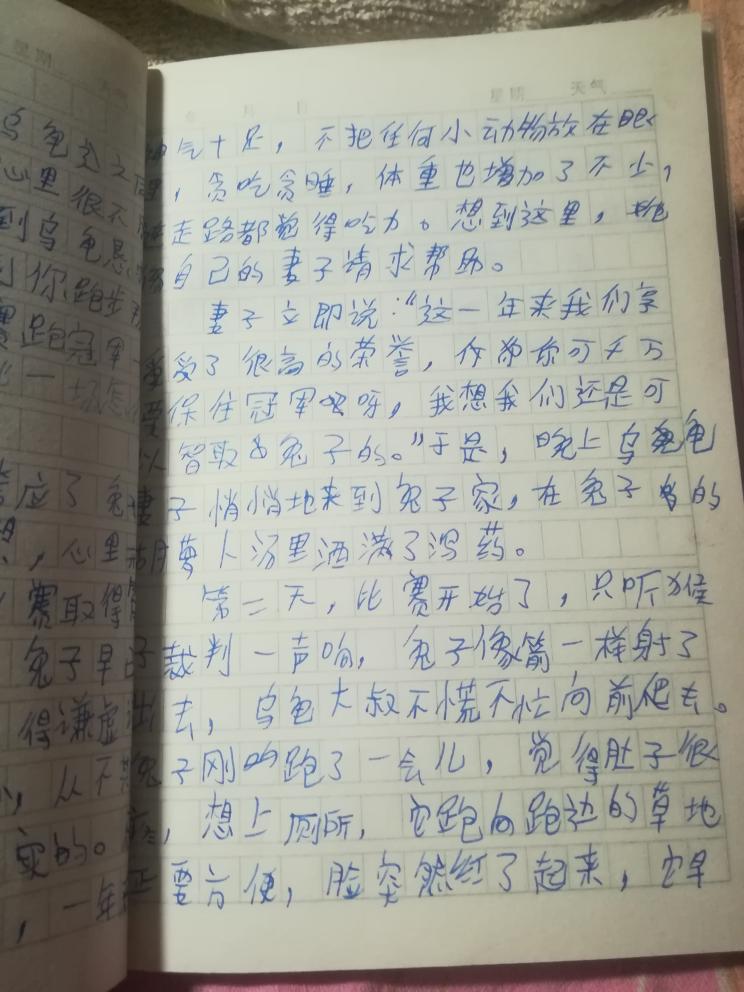 星期 天气
年 月 日 星期 天气
乌龟
神气十足，不把任何小动物放在眼
心里很不
里，贪吃贪睡，体重也增加了不少，
到乌龟
走路都觉得吃力。想到这里，
到你跑步
自己的妻子请求帮助。
赛跑冠军
妻子立即说：“这一年来我们享
一场
受了很高的荣誉，你可千万
要保住冠军呀，我想我们还是可
以智取兔子的。”于是，晚上乌龟
答应了兔
妻子悄悄地来到兔子家，在兔子的
，心里
胡萝卜汤里洒满了泻药。
赛取得
第二天，比赛开始了，只听猴
兔子早已
子裁判一声响，兔子像箭一样射了
得谦虚
出去，乌龟大叔不慌不忙向前爬去。
，从不
兔子刚跑了一会儿，觉得肚子很
实的。
疼，想上厕所，它跑向跑边的草地
，一年
正要方便，脸突然红了起来，它早